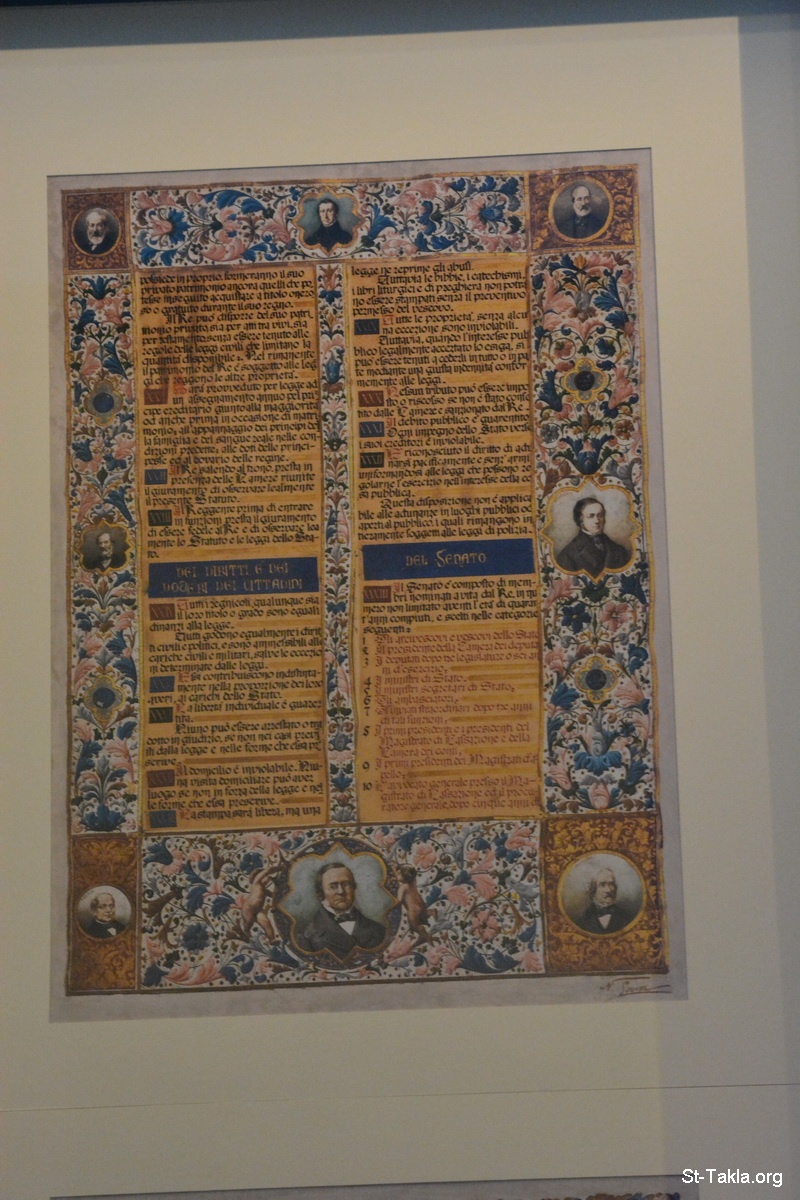 possiede in proprio, formeranno il suo
privato patrimonio ancora quelli che po-
tesse in seguito acquistare a titolo onero-
so o gratuito durante il suo regno.
Il Re può disporre del suo patri-
monio privato sia per atti tra vivi, sia
per testamento, senza essere tenuto alle
regole delle leggi civili che limitano la
quantità disponibile. Nel rimanente
il patrimonio del Re è soggetto alle leg-
gi che reggono le altre proprietà.
Sarà provveduto per legge ad
un assegnamento annuo pel prin-
cipe ereditario giunto alla maggiorità
od anche prima in occasione di matri-
monio; all'appannaggio dei principi del
la famiglia e del sangue reale nelle con-
dizioni predette; alle doti delle princi-
pesse ed al dovario delle regine.
Il Re salendo al trono, presta in
presenza delle Camere riunite
il giuramento di osservare lealmente
il presente Statuto.
Il Reggente prima di entrare
in funzioni presta il giuramento
di essere fedele al Re e di osservare leal
mente lo Statuto e le leggi dello Sta-
to.
DEI DIRITTI E DEI
DOVERI DEI CITTADINI
Tutti i regnicoli, qualunque sia
il loro titolo o grado sono eguali
dinanzi alla legge.
Tutti godono egualmente i dirit
ti civili e politici, e sono ammessibili alle
cariche civili e militari, salve le eccezio
ni determinate dalle leggi.
Essi contribuiscono indistinta-
mente nella proporzione dei loro
averi, ai carichi dello Stato.
La libertà individuale è guaren
tita.
Niuno può essere arrestato o tra
dotto in giudizio, se non nei casi previ
sti dalla legge e nelle forme che essa pre
scrive.
Il domicilio è inviolabile. Niu-
na visita domiciliare può aver
luogo se non in forza della legge e nel
le forme che essa prescrive.
La stampa sarà libera, ma una
legge ne reprime gli abusi.
Tuttavia le bibbie, i catechismi,
i libri liturgici e di preghiera non potran
no essere stampati senza il preventivo
permesso del vescovo.
Tutte le proprietà, senza alcu
na eccezione sono inviolabili.
Tuttavia, quando l'interesse pub
blico legalmente accertato lo esiga, si
può essere tenuti a cederli in tutto o in par
te mediante una giusta indennità confor
memente alle leggi.
XXX Nessun tributo può essere impo
sto o riscosso se non è stato consen
tito dalle Camere e sanzionato dal Re.
XXXI Il debito pubblico è guarentito
Ogni impegno dello Stato verso
i suoi creditori è inviolabile.
XXXII È riconosciuto il diritto di adu
narsi pacificamente e senz'armi,
uniformandosi alle leggi che possono re
golarne l'esercizio nell'interesse della co
sa pubblica.
Questa disposizione non è applica
bile alle adunanze in luoghi pubblici od
aperti al pubblico, i quali rimangono in
tieramente soggetti alle leggi di polizia.
DEL SENATO
XXXIII Il Senato è composto di mem-
bri nominati a vita dal Re, in nu
mero non limitato aventi l'età di quaran
t'anni compiuti, e scelti nelle categorie
seguenti:
Gli arcivescovi e vescovi dello Stato
2 Il presidente della Camera dei deputa
3 I deputati dopo tre legislature o sei an
ni d'esercizio,
4 I ministri di Stato,
5 I ministri segretari di Stato,
6 Gli ambasciatori,
7 Gli inviati straordinari dopo tre anni
di tali funzioni,
8 I primi presidenti e i presidenti del
Magistrato di Cassazione e della
Camera dei conti,
9 I primi presidenti dei Magistrati d'ap
pello,
10 L'avvocato generale presso il Ma-
gistrato di Cassazione ed il procu-
ratore generale, dopo cinque anni di
St-Takla.org